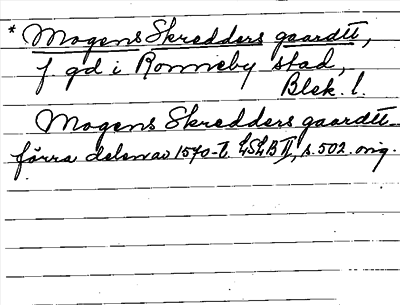 * Mogens Skredders gaardtt,
f gd i Ronneby stad,
Blek. l.
Mogens Skredders gaardtt
förra delen av 1570-t. LSLB II, s. 502. orig.